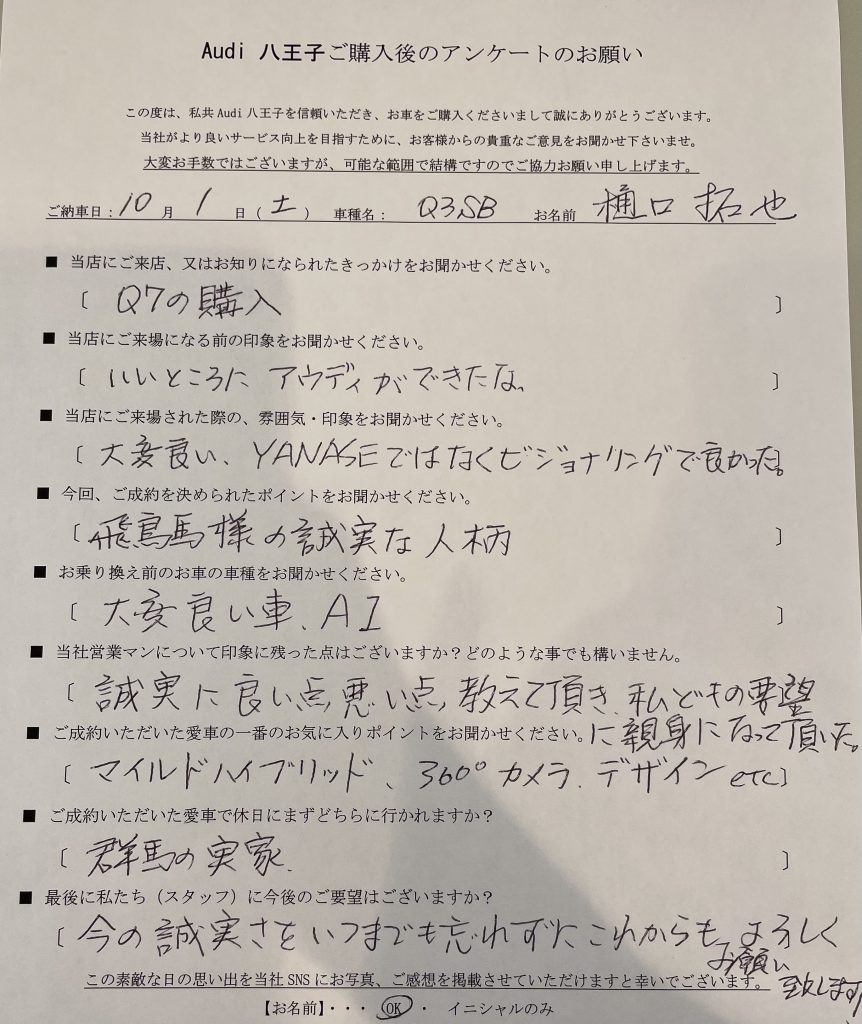 Audi 八王子ご購入後のアンケートのお願い
この度は、私共Audi八王子を信頼いただき、お車をご購入くださいまして誠にありがとうございます。
当社がより良いサービス向上を目指すために、お客様からの貴重なご意見をお聞かせ下さいませ。
大変お手数ではございますが、可能な範囲で結構ですのでご協力お願い申し上げます。
ご納車日：10月1日（土） 車種名： Q3SB お名前 樋口拓也
■ 当店にご来店、又はお知りになられたきっかけをお聞かせください。
〔 Q7の購入 〕
■ 当店にご来場になる前の印象をお聞かせください。
〔 いいところに アウディができたな。 〕
■ 当店にご来場された際の、雰囲気・印象をお聞かせください。
〔 大変良い、YANASEではなくビジョナリングで良かった。〕
■ 今回、ご成約を決められたポイントをお聞かせください。
〔 飛鳥馬様の誠実な人柄 〕
■ お乗り換え前のお車の車種をお聞かせください。
〔 大変良い車、A1 〕
■ 当社営業マンについて印象に残った点はございますか？どのような事でも構いません。
〔 誠実に良い点, 悪い点, 教えて頂き、私どもの要望
に親身になって頂いた。
■ ご成約いただいた愛車の一番のお気に入りポイントをお聞かせください。
〔 マイルドハイブリッド、360°カメラ、デザイン etc 〕
■ ご成約いただいた愛車で休日にまずどちらに行かれますか？
〔 群馬の実家. 〕
■ 最後に私たち（スタッフ）に今後のご要望はございますか？
〔 今の誠実さをいつまでも忘れずにこれからも、よろしく
お願い
致します!
この素敵な日の思い出を当社 SNS にお写真、ご感想を掲載させていただけますと幸いでございます。
【お名前】・・・ OK ・ イニシャルのみ